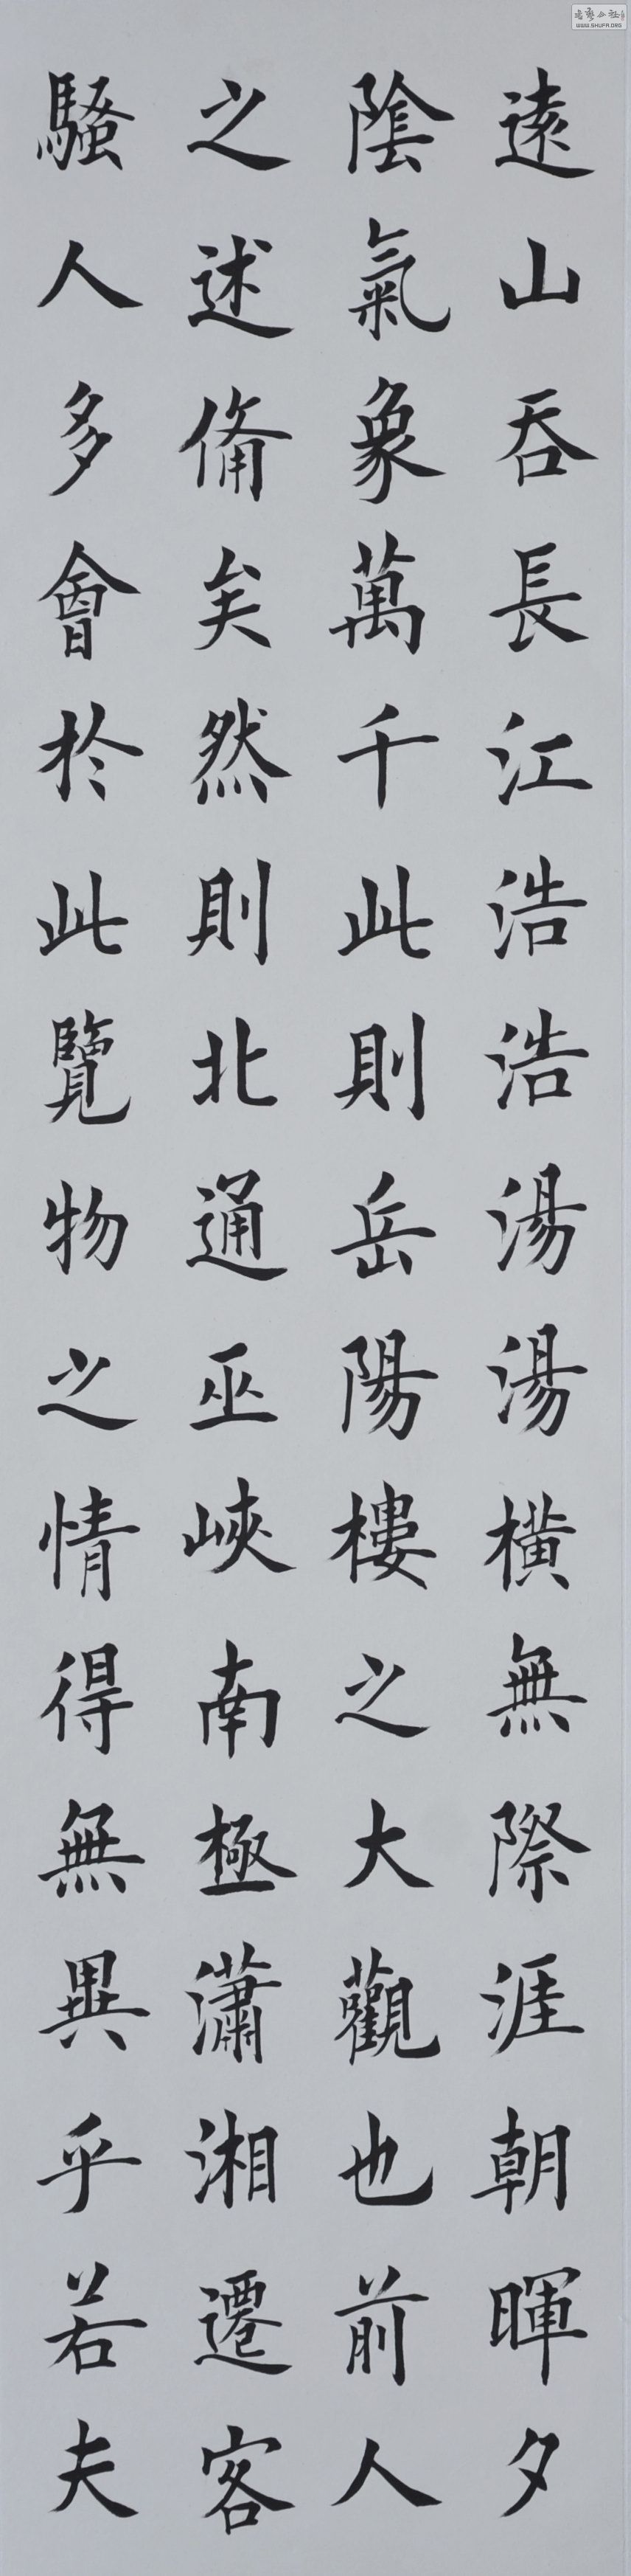 遠山吞長江浩浩湯湯橫無際涯朝暉夕
陰氣象萬千此則岳陽樓之大觀也前人
之述俻矣然則北通巫峽南極瀟湘遷客
騷人多會於此覽物之情得無異乎若夫
WWW.SHUFA.ORG